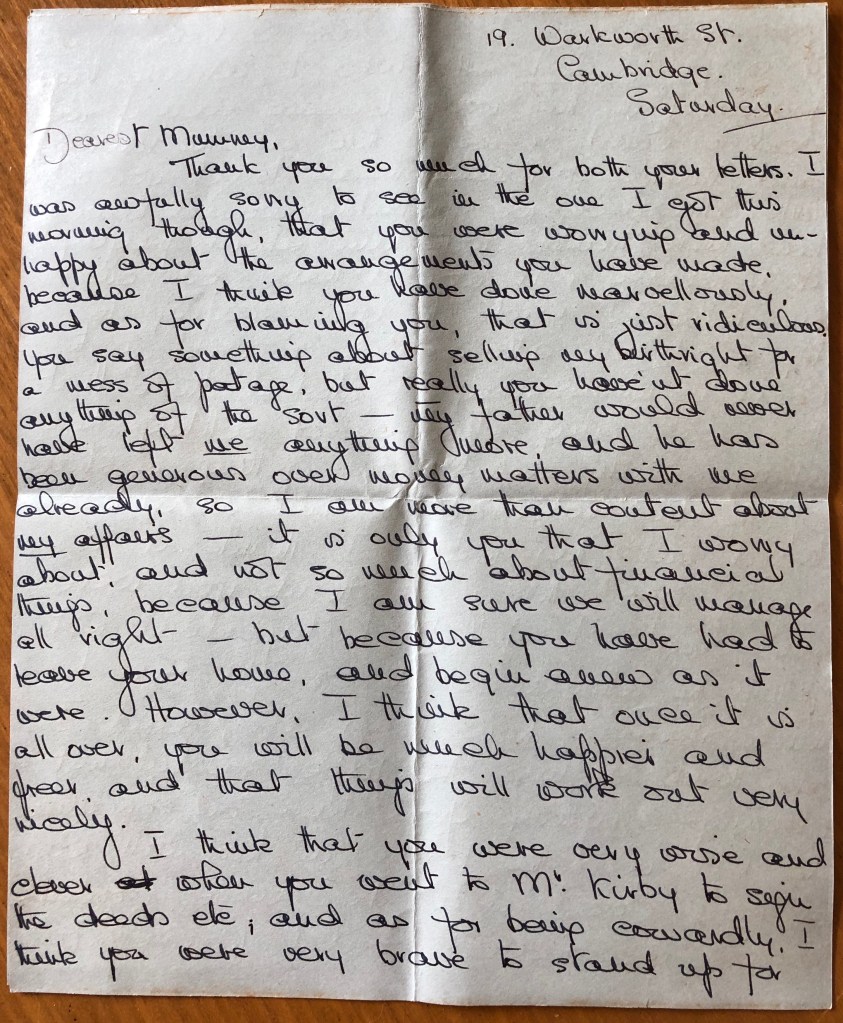 19. Warkworth St.
Cambridge.
Saturday.
Dearest Mummy,
Thank you so much for both your letters. I
was awfully sorry to see in the one I got this
morning though, that you were worrying and un-
happy about the arrangements you have made,
because I think you have done marvellously,
and as for blaming you, that is just ridiculous.
You say something about selling my birthright for
a mess of potage, but really you have'nt done
anything of the sort — my father would never
have left me anything more, and he has
been generous over money matters with me
already, so I am more than content about
my affairs — it is only you that I worry
about, and not so much about financial
things, because I am sure we will manage
all right — but because you have had to
leave your home, and begin anew as it
were. However, I think that once it is
all over, you will be much happier and
freer, and that things will work out very
nicely.
I think that you were very wise and
clever when you went to Mr. Kirby to sign
the deeds etc; and as for being cowardly, I
think you were very brave to stand up for